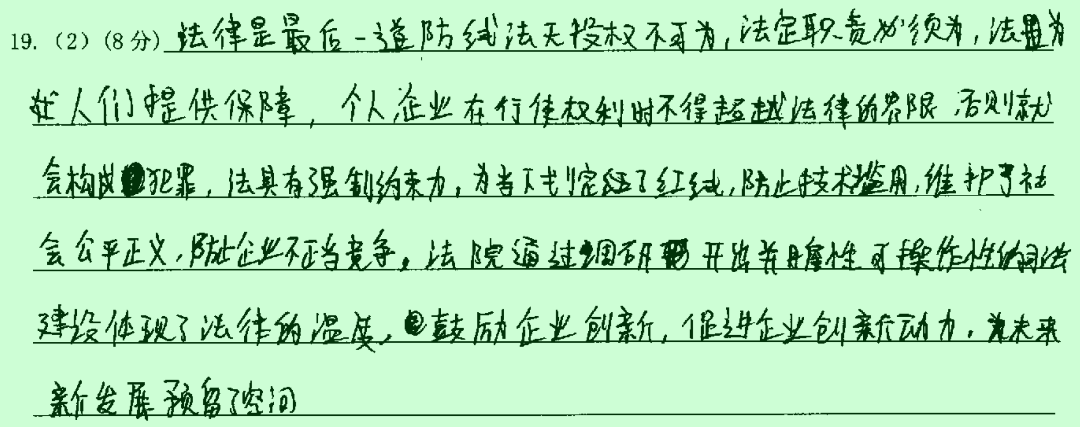 19.（2）（8分）法律是最后一道防线法无授权不可为，法定职责必须为，法置为
处人们提供保障，个人企业在行使权利时不得超越法律的界限，否则就
会构成犯罪，法具有强制约束力，为当下划定红了红线，防止技术滥用，维护了社
会公平正义，防止企业不正当竞争。法院通过调研 开出并 性可操作性的司法
建设体现了法律的温度，鼓励企业创新，促进企业创新动力，为未来
新发展预留了空间